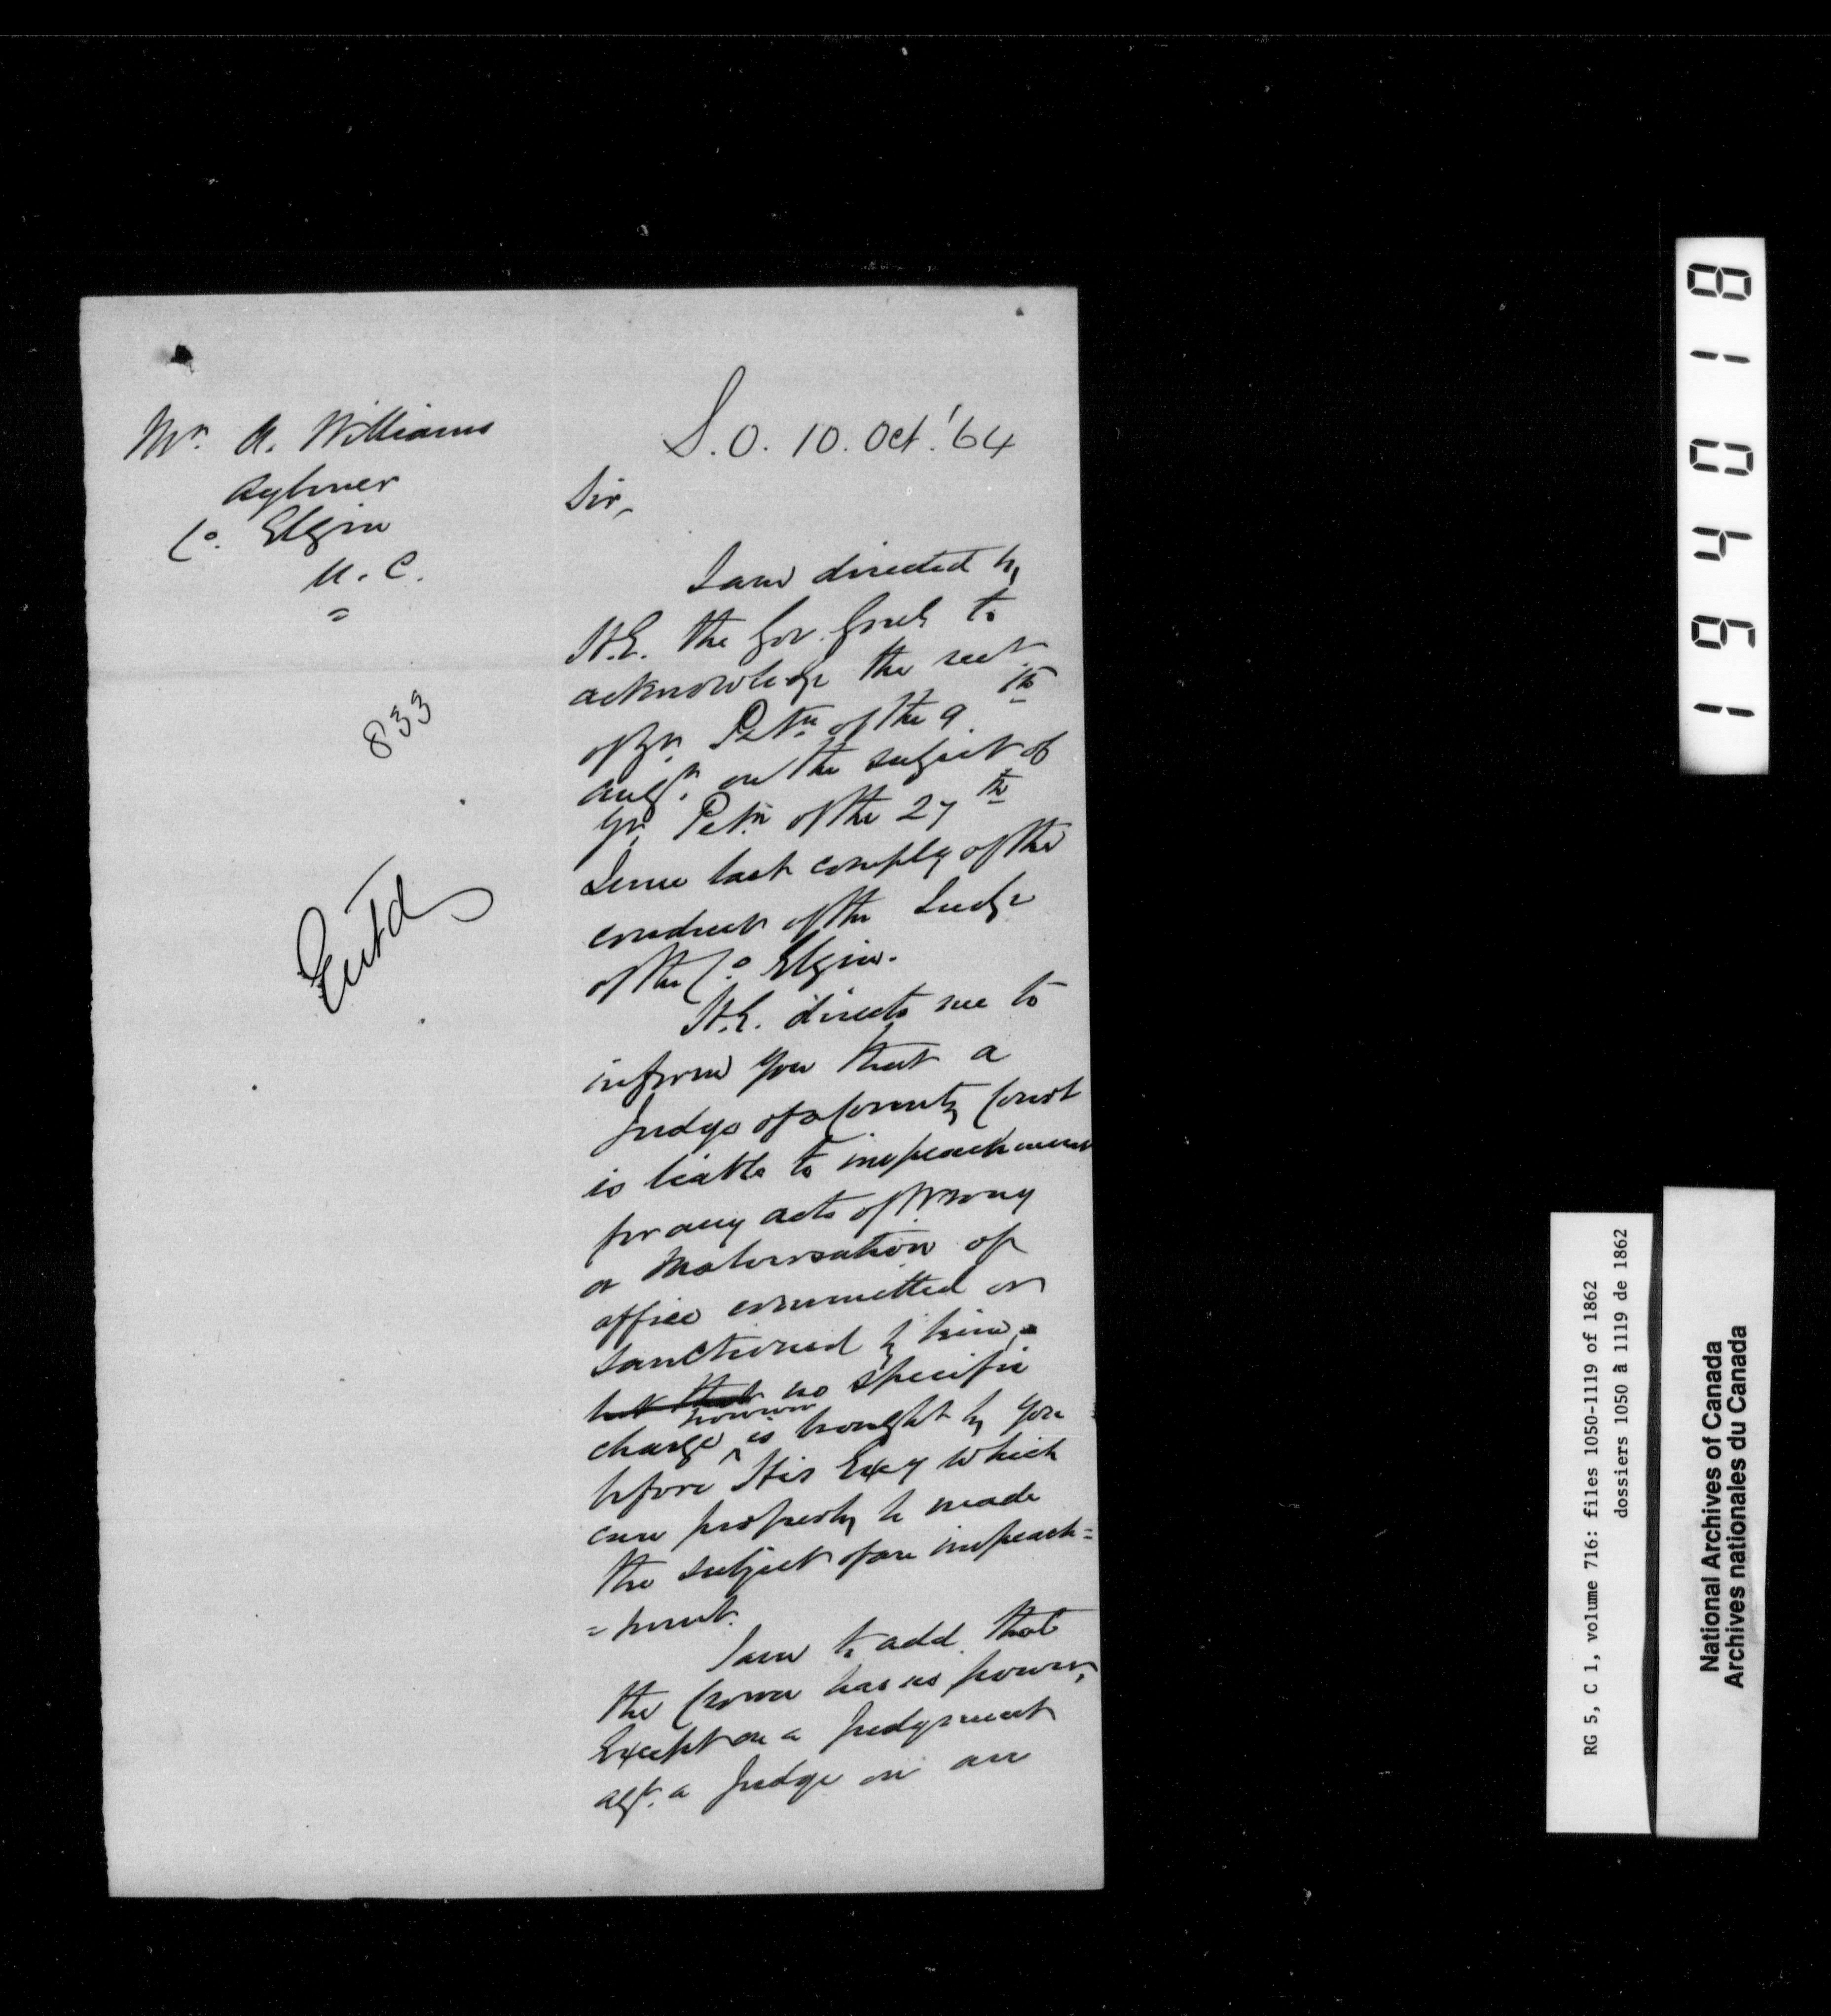 Mr. A. Williams
Aylmer
Co. Elgin
U. C.
833
Entd
S.O. 10. Oct. '64
Sir,
I am directed by
H.E. the Gov. Genl to
acknowledge the rect
of yr. Petn of the 9th
Augt. on the subject of
yr. Petn of the 27th
June last complg of the
conduct of the Judge
of the Co. Elgin.
H.E. directs me to
inform you that a
Judge of a County Court
is liable to impeachment
for any acts of wrong
or malversation of
office committed or
sanctioned by him,
but that no specific
charge however is brought by you
before His Excy which
can properly be made
the subject of an impeach=
=ment.
I am to add that
the Crown has no power,
except on a Judgment
agt. a Judge on an
194018
RG 5, C 1, volume 716: files 1050-1119 of 1862
dossiers 1050 à 1119 de 1862
National Archives of Canada
Archives nationales du Canada